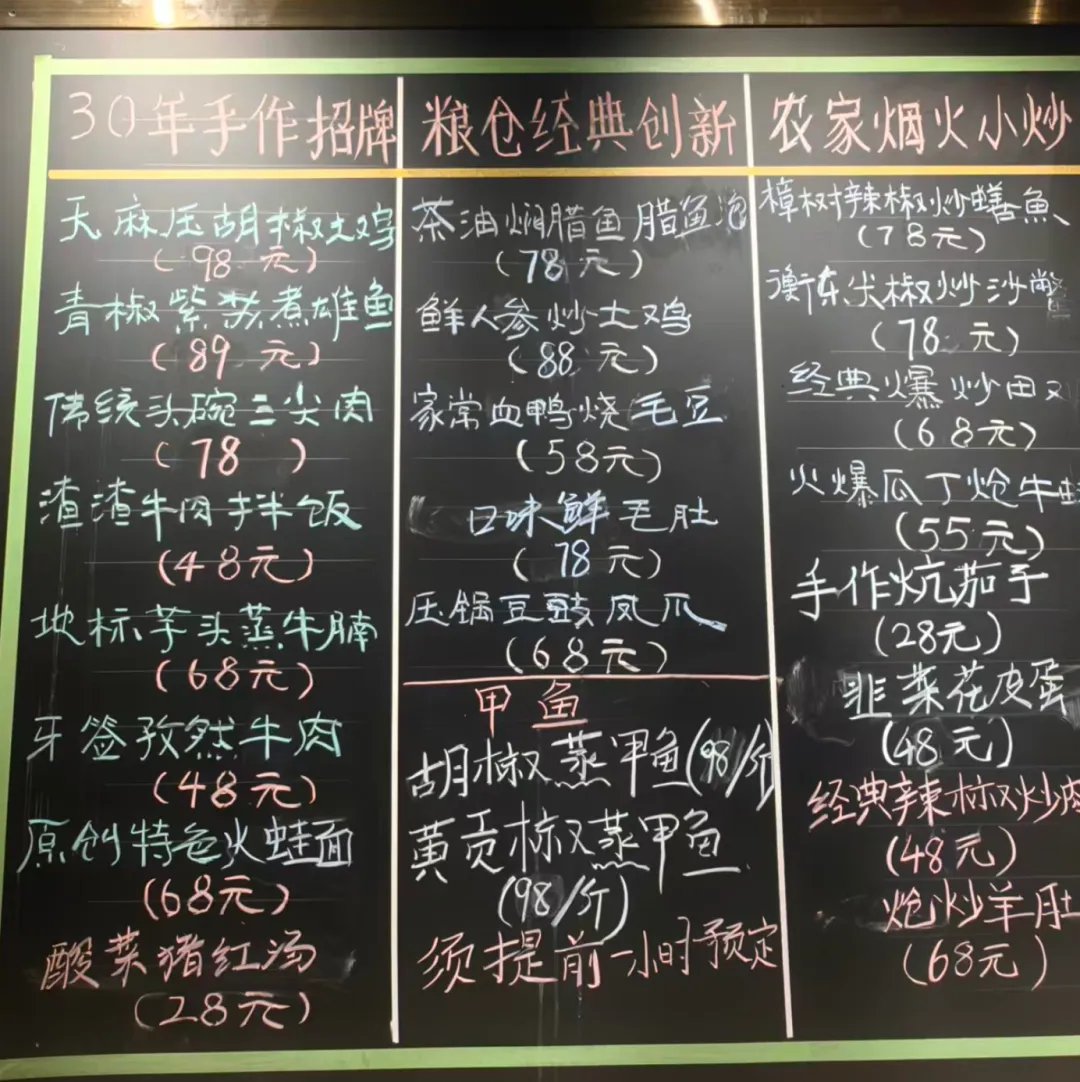 30年手作招牌
天麻压胡椒土鸡
(98元)
青椒紫苏煮雄鱼
(89元)
传统头碗三尖肉
(78 )
渣渣牛肉拌饭
(48元)
地标芋头蒸牛腩
(68元)
牙签孜然牛肉
(48元)
原创特色火蛙面
(68元)
酸菜猪红汤
(28元)
粮仓经典创新
茶油焖腊鱼腊鱼泡
(78元)
鲜人参炒土鸡
(88元)
家常血鸭烧毛豆
(58元)
口味鲜毛肚
(78元)
压锅豆豉凤爪
(68元)
甲鱼
胡椒蒸甲鱼(98/斤)
黄贡椒蒸甲鱼
(98/斤)
须提前一小时预定
农家烟火小炒
樟树辣椒炒鳝魚
(78元)
衡东尖椒炒沙鳖
(78元)
经典爆炒田
(68元)
火爆瓜丁炝牛
(55元)
手作炕茄子
(28元)
韭菜花皮蛋
(48元)
经典辣椒炒肉
(48元)
炝炒羊肚
(68元)